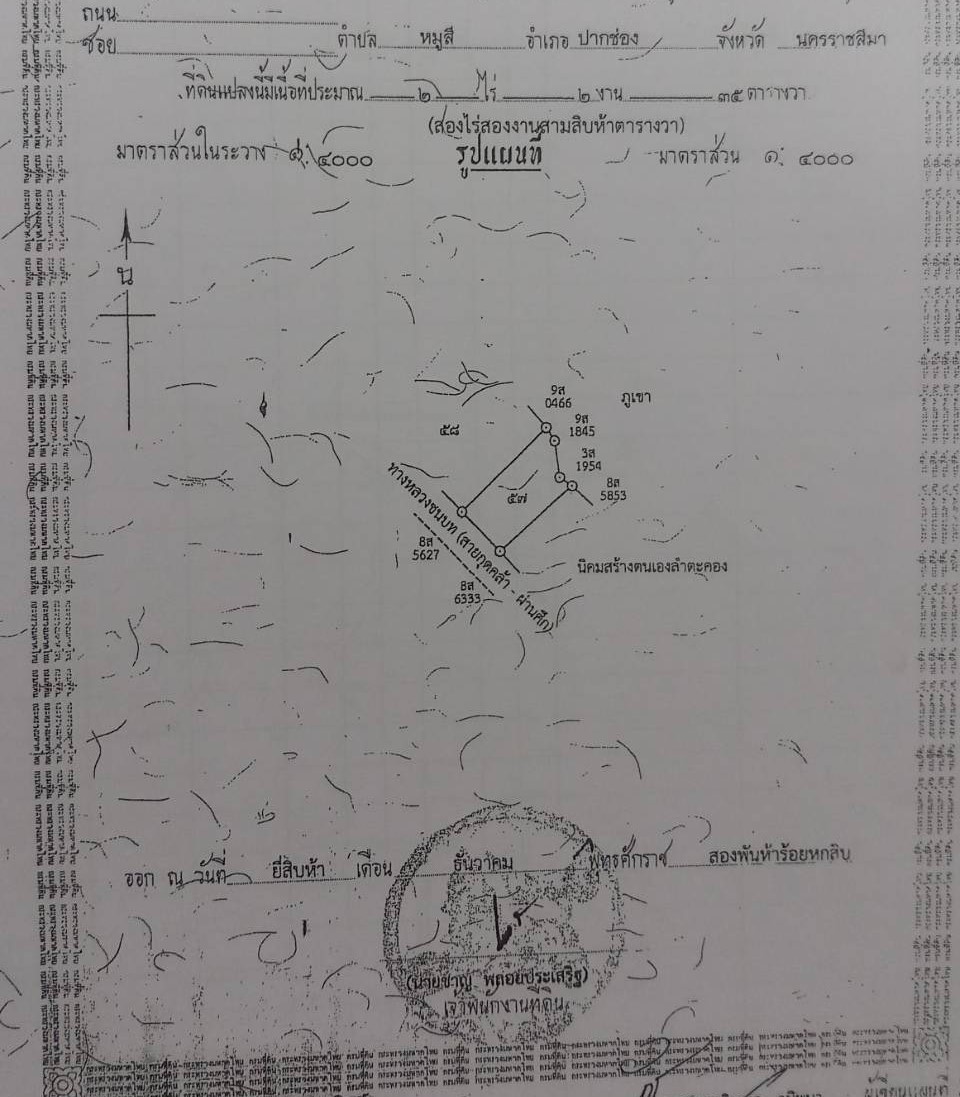 ถนน
ซอย ตำบล หมูสี อำเภอ ปากช่อง จังหวัด นครราชสีมา
ที่ดินแปลงนี้มีเนื้อที่ประมาณ ๒ ไร่ ๒ งาน ๓๕ ตารางวา
(สองไร่สองงานสามสิบห้าตารางวา)
มาตราส่วนในระวาง ๑: ๔๐๐๐ รูปแผนที่ มาตราส่วน ๑: ๔๐๐๐
น
9ส
0466
ภูเขา
9ส
1845
๕๘
3ส
1954
8ส
5853
๕๗
ทางหลวงชนบท (สายกุดคล้า - ผ่านศึก)
8ส
5627
นิคมสร้างตนเองลำตะคอง
8ส
6333
ออก ณ วันที่ ยี่สิบห้า เดือน ธันวาคม พุทธศักราช สองพันห้าร้อยหกสิบ
เจ้าพนักงานที่ดิน